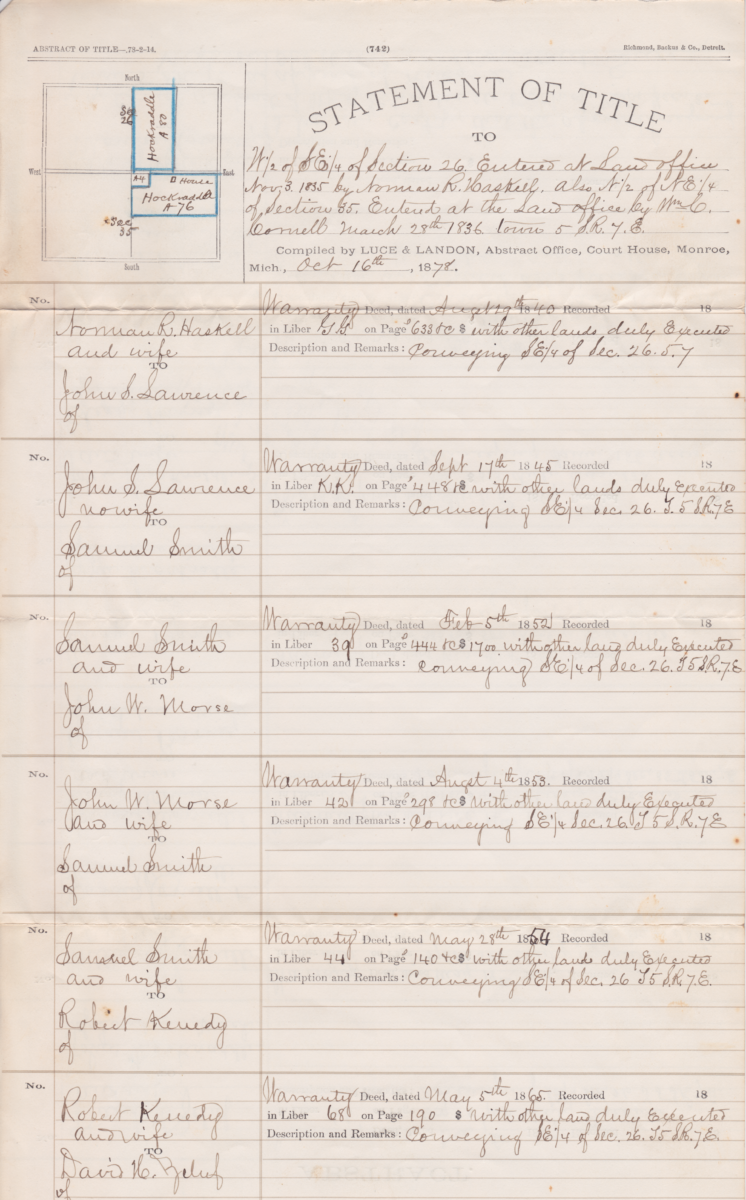 ABSTRACT OF TITLE—78-2-14.
(742)
Richmond, Backus & Co., Detroit.
North
Sec 26
Hockraddle
A 80
West
East
A4
House
Hockraddle
A 76
Sec 35
South
STATEMENT OF TITLE
TO
W/2 of SE/4 of Section 26 Entered at Land office
Nov. 3. 1835 by Norman R. Haskell. also N/2 of NE/4
of Section 35. Entered at the Land office by Wm C.
Cornell March 28th 1836 Town 5 S.R. 7. E.
Compiled by LUCE & LANDON, Abstract Office, Court House, Monroe,
Mich., Oct 16th, 1878.
No.
Norman R. Haskell
and wife
TO
John S. Lawrence
of
Warranty Deed, dated Augst 29th 1840 Recorded 18
in Liber on Page 633 &c $ with other lands duly Executed
Description and Remarks: Conveying SE/4 of Sec. 26. 5. 7
No.
John S. Lawrence
no wife
TO
Samuel Smith
of
Warranty Deed, dated Sept 17th 1845 Recorded 18
in Liber K.K. on Page 448 &c with other lands duly Executed
Description and Remarks: Conveying SE/4 Sec. 26. T. 5 S.R. 7E
No.
Samuel Smith
and wife
TO
John W. Morse
of
Warranty Deed, dated Feb 5th 1852 Recorded 18
in Liber 39 on Page 444 &c $ 1700 with other land duly Executed
Description and Remarks: Conveying SE/4 of Sec. 26. T5 S.R. 7E
No.
John W. Morse
and wife
TO
Samuel Smith
of
Warranty Deed, dated Augst 4th 1853. Recorded 18
in Liber 42 on Page 298 &c $ with other land duly Executed
Description and Remarks: Conveying SE/4 Sec. 26. T 5 S.R. 7E
No.
Samuel Smith
and wife
TO
Robert Kenedy
of
Warranty Deed, dated May 28th 1854 Recorded 18
in Liber 44 on Page 140 &c $ with other lands duly Executed
Description and Remarks: Conveying SE/4 of Sec. 26 T5 S.R. 7.E.
No.
Robert Kenedy
and wife
TO
David H.
of
Warranty Deed, dated May 5th 1865. Recorded 18
in Liber 68 on Page 190 $ with other land duly Executed
Description and Remarks: Conveying SE/4 of Sec. 26. T5 S.R. 7E.